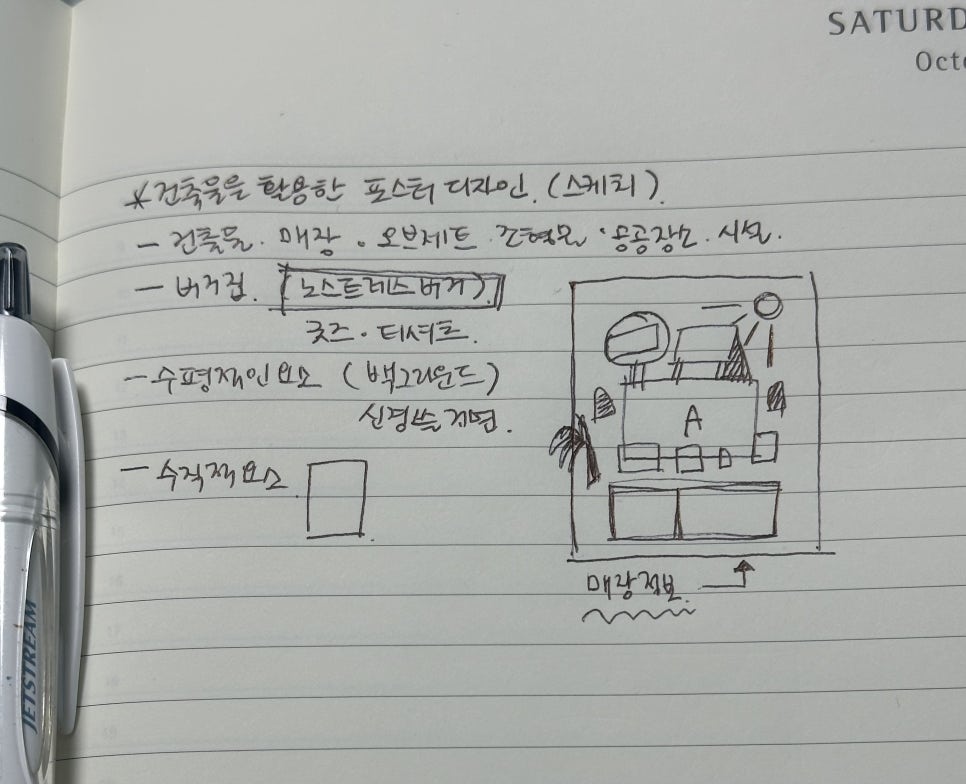 SATURD
Octo
*건축물을 활용한 포스터 디자인. (스케치).
- 건축물. 매장. 오브제트. 조형물. 공공장소. 시설.
- 버거집. (노스트레스버거).
굿즈. 티셔츠.
- 수평재인 요소 (백그라운드)
신경쓸 지면.
- 수직재 요소.
A
매장정보.
JETSTREAM